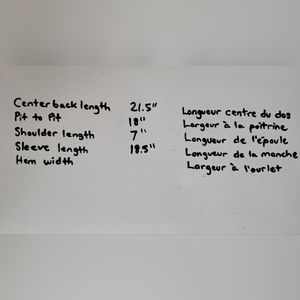 Center back length 21.5" Longueur centre du dos
Pit to Pit 18" Largeur à la poitrine
Shoulder length 7" Longueur de l'épaule
Sleeve length 18.5" Longueur de la manche
Hem width Largeur à l'ourlet